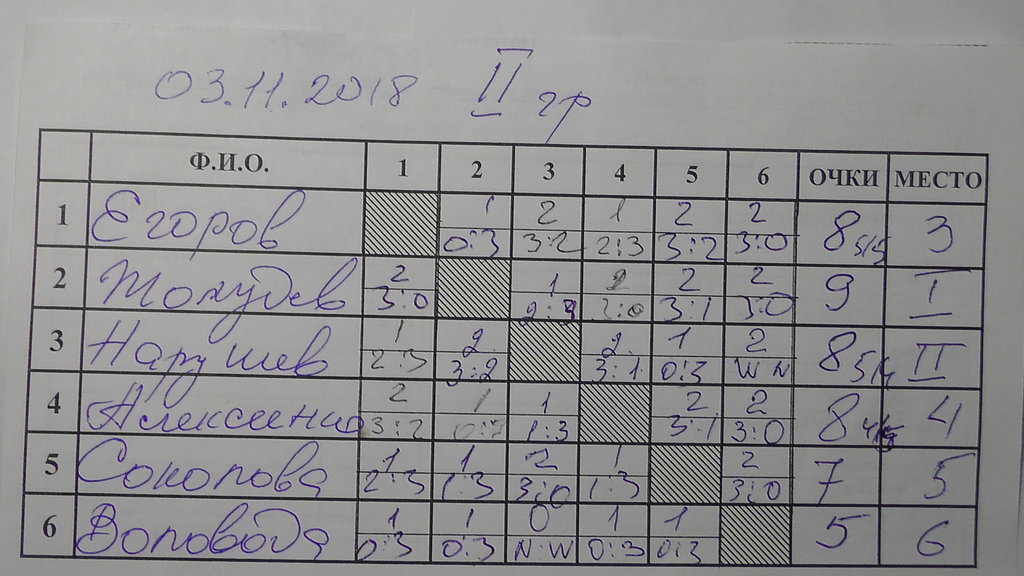 03.11.2018 II гр
Ф.И.О. 1 2 3 4 5 6 ОЧКИ МЕСТО
1 Егоров 1 2 1 2 2 8 5/5 3
0:3 3:2 2:3 3:2 3:0
2 2 1 2 2 2 9 I
3:0 2:3 3:0 3:1 3:0
3 Нарушев 1 2 2 1 2 8 II
2:3 3:2 3:1 0:3 W N
4 2 1 1 2 2 8 4
3:2 1:3 3:1 3:0
5 Соколова 1 1 2 1 2 7 5
2:3 1:3 3:0 1:3 3:0
6 Воловода 1 1 0 1 1 5 6
0:3 0:3 N:W 0:3 0:3